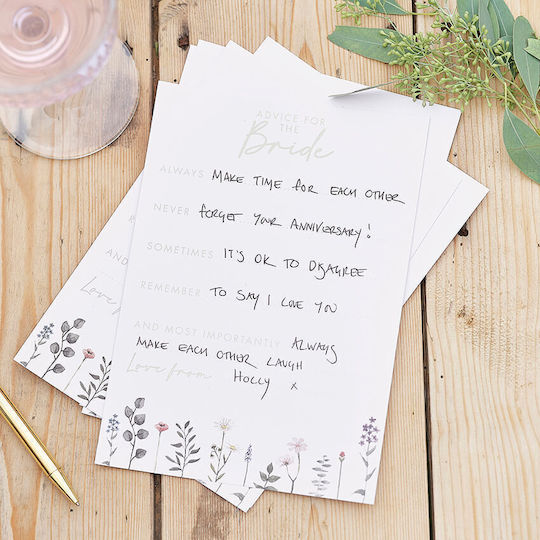 ADVICE FOR
THE
Bride
ALWAYS MAKE TIME FOR EACH OTHER
NEVER FORGET YOUR ANNIVERSARY!
SOMETIMES IT'S OK TO DISAGREE
REMEMBER TO SAY I LOVE YOU
AND MOST IMPORTANTLY ALWAYS
MAKE EACH OTHER LAUGH
Love from HOLLY x
AND
Love from